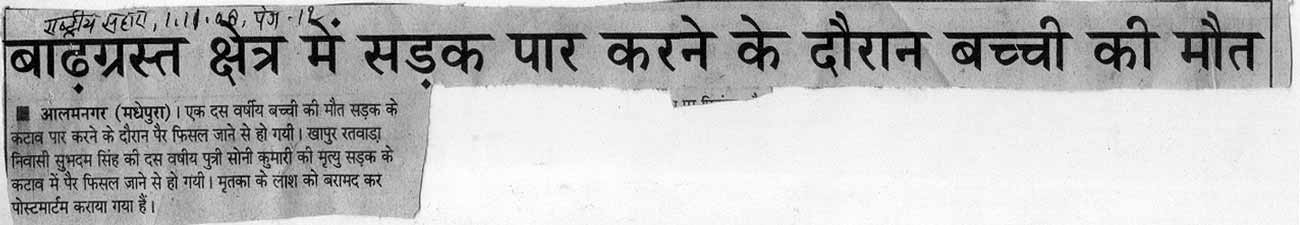 राष्ट्रीय सहारा, 1.11.08, पेज - 12
बाढ़ग्रस्त क्षेत्र में सड़क पार करने के दौरान बच्ची की मौत
■ आलमनगर (मधेपुरा)। एक दस वर्षीय बच्ची की मौत सड़क के
कटाव पार करने के दौरान पैर फिसल जाने से हो गयी। खापुर रतवाड़ा
निवासी सुभदम सिंह की दस वषीय पुत्री सोनी कुमारी की मृत्यु सड़क के
कटाव में पैर फिसल जाने से हो गयी। मृतका के लाश को बरामद कर
पोस्टमार्टम कराया गया हैं।